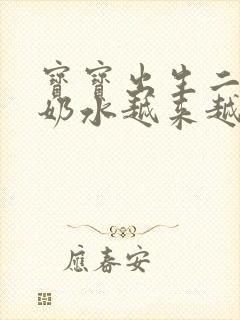 寶寶出生二
奶水越来越
應春安